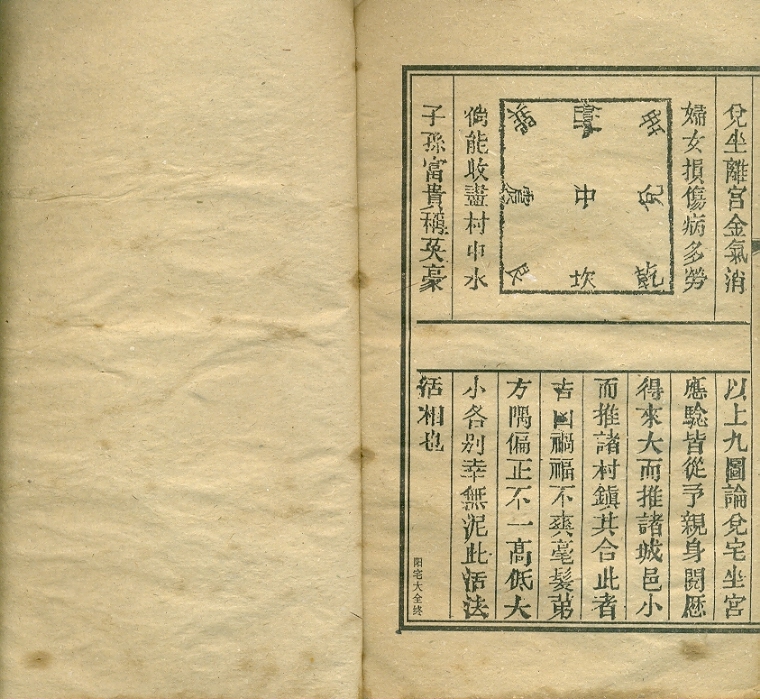 兌坐離宮金氣消
婦女損傷病多勞
坤
兌
乾
離
中
坎
巽
震
艮
倘能收盡村中水
子孫富貴稱英豪
以上九圖論兌宅坐宮
應驗皆從予親身閱歷
得來大而推諸城邑小
而推諸村鎮其合此者
吉凶禍福不爽毫髮第
方隅偏正不一高低大
小各別幸無泥此活法
活相也
阳宅大全终